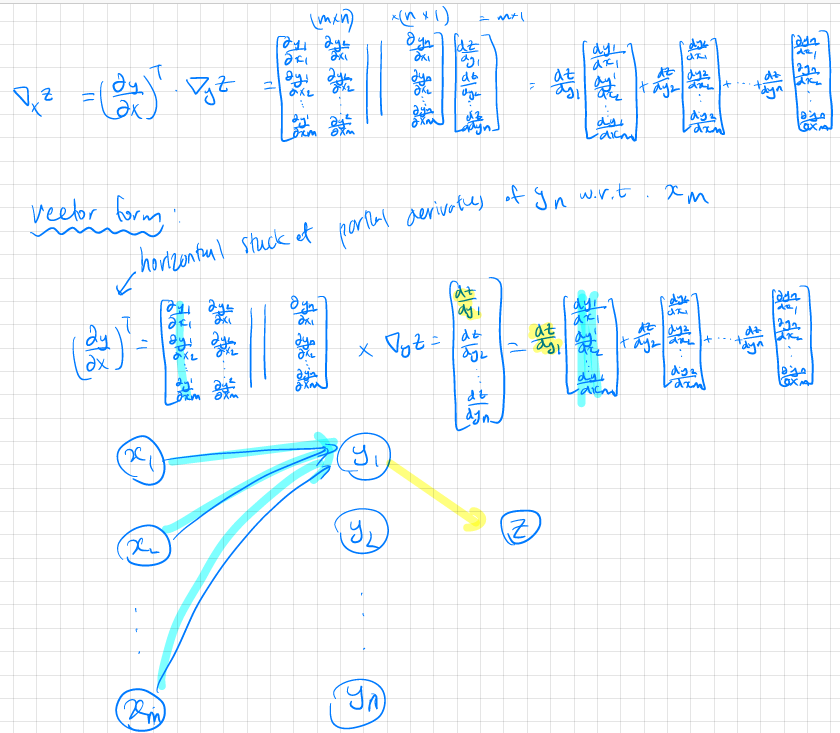 (m×n) ×(n×1) = m×1
∇ₓz = (∂y/∂x)ᵀ · ∇ᵧz = [∂y₁/∂x₁ ∂y₂/∂x₁ | | ∂yₙ/∂x₁; ∂y₁/∂x₂ ∂y₂/∂x₂ ∂yₙ/∂x₂; ⋮ ⋮ ⋮; ∂y₁/∂xₘ ∂y₂/∂xₘ ∂yₙ/∂xₘ] [dz/dy₁; dz/dy₂; ⋮; dz/dyₙ] = dz/dy₁ [dy₁/dx₁; dy₁/dx₂; ⋮; dy₁/dxₘ] + dz/dy₂ [dy₂/dx₁; dy₂/dx₂; ⋮; dy₂/dxₘ] + ⋯ + dz/dyₙ [∂yₙ/∂x₁; ∂yₙ/∂x₂; ⋮; ∂yₙ/∂xₘ]
vector form:
horizontal stack of partial derivatives of yₙ w.r.t. xₘ
(∂y/∂x)ᵀ = [∂y₁/∂x₁ ∂y₂/∂x₁ | | ∂yₙ/∂x₁; ∂y₁/∂x₂ ∂y₂/∂x₂ ∂yₙ/∂x₂; ⋮ ⋮ ⋮; ∂y₁/∂xₘ ∂y₂/∂xₘ ∂yₙ/∂xₘ] × ∇ᵧz = [dz/dy₁; dz/dy₂; ⋮; dz/dyₙ] = dz/dy₁ [dy₁/dx₁; dy₁/dx₂; ⋮; dy₁/dxₘ] + dz/dy₂ [dy₂/dx₁; dy₂/dx₂; ⋮; dy₂/dxₘ] + ⋯ + dz/dyₙ [∂yₙ/∂x₁; ∂yₙ/∂x₂; ⋮; ∂yₙ/∂xₘ]
x₁ y₁
x₂ y₂ z
⋮ ⋮
xₘ yₙ